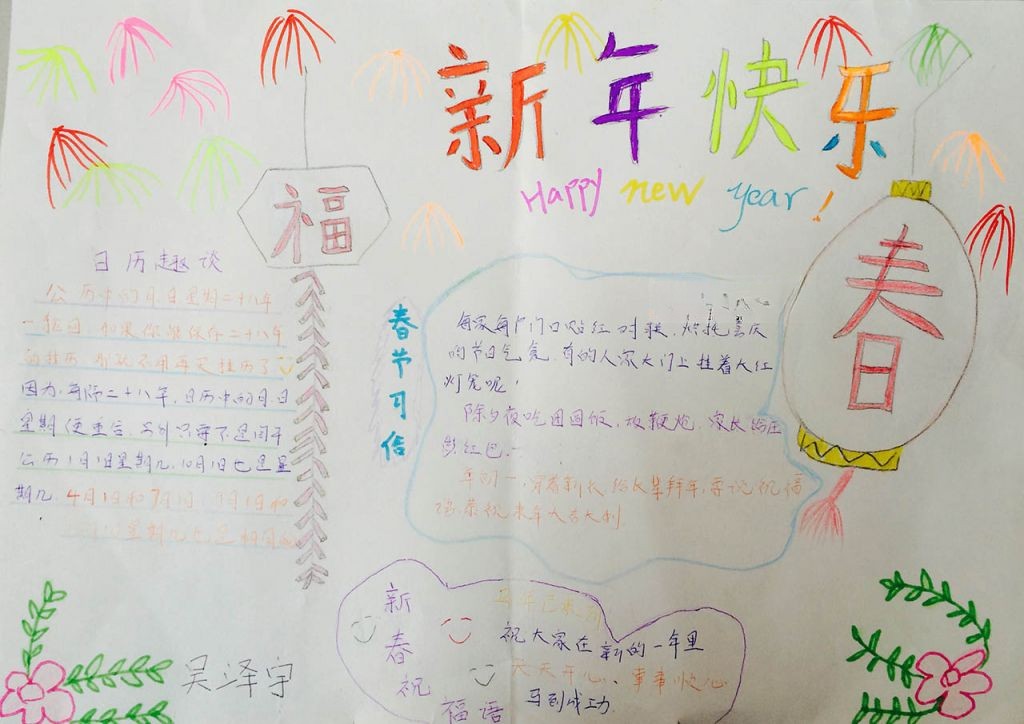 新年快乐
Happy new year!
福
春
日历趣谈
公历中的月、日星期二十八年
一轮回,如果你能保存二十八年
的挂历,那就不用再买挂历了
因为,每隔二十八年,日历中的月、日
星期便重合,另外只要不是闰年
公历1月1日星期几,10月1日也是星
期几,4月1日和7月1日,9月1日和
星期几也是相同的
春节习俗
每家每户门口贴红对联,烘托喜庆
的节日气氛,有的人家大门上挂着大红
灯笼呢!
除夕夜吃团圆饭,放鞭炮,家长给压
红包
年初一,穿着新衣给长辈拜年,要说祝福
来年大吉大利
新春祝福语
马年已来到
祝大家在新的一年里
天天开心、事事快心
马到成功.
吴泽宇